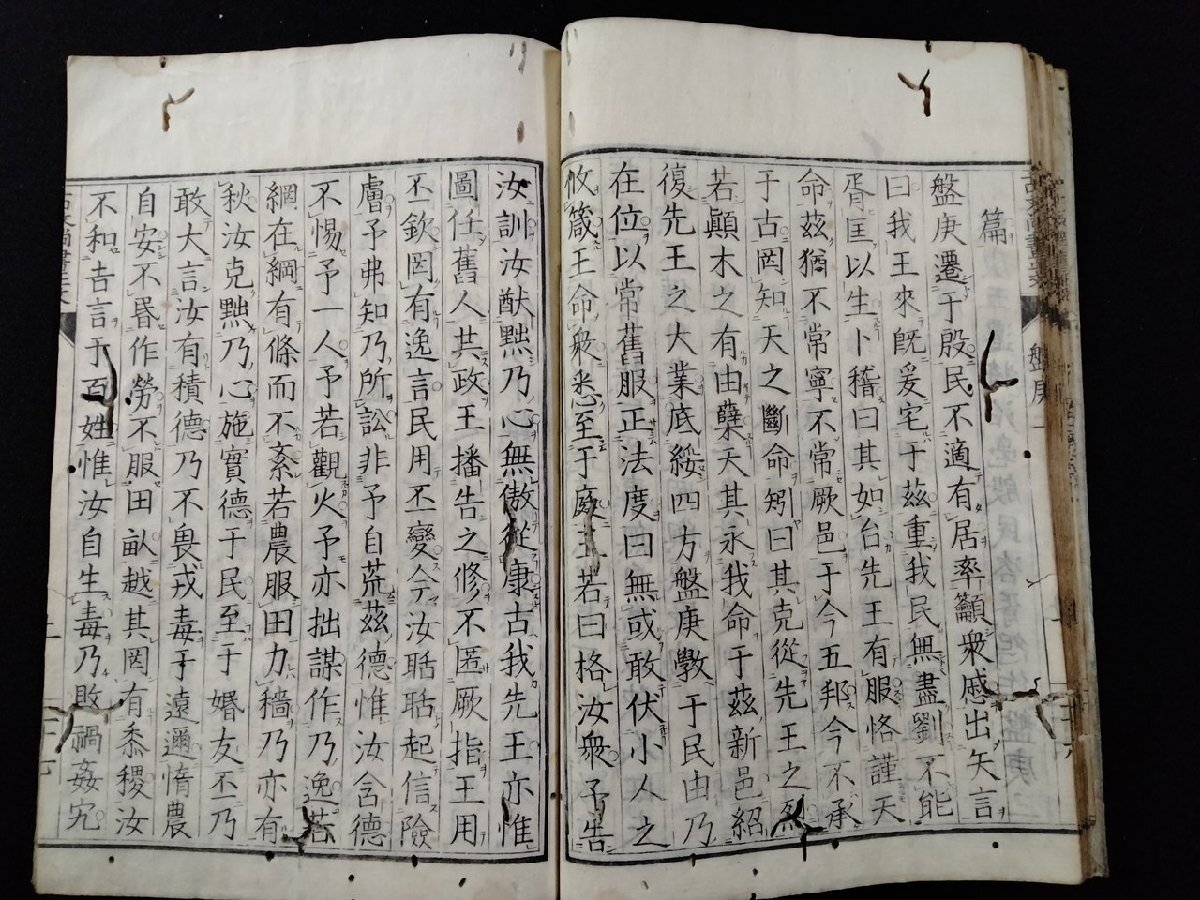 篇
盤庚遷于殷民不適有居率籲衆慼出矢言
曰我王來既爰宅于茲重我民無盡劉不能
胥匡以生卜稽曰其如台先王有服恪謹天
命茲猶不常寧不常厥邑于今五邦今不承
于古罔知天之斷命矧曰其克從先王之烈
若顚木之有由蘖天其永我命于茲新邑紹
復先王之大業底綏四方盤庚斅于民由乃
在位以常舊服正法度曰無或敢伏小人之
攸箴王命衆悉至于庭王若曰格汝衆予告
汝訓汝猷黜乃心無傲從康古我先王亦惟
圖任舊人共政王播告之修不匿厥指王用
丕欽罔有逸言民用丕變今汝聒聒起信險
膚予弗知乃所訟非予自荒茲德惟汝含德
不惕予一人予若觀火予亦拙謀作乃逸若
網在綱有條而不紊若農服田力穡乃亦有
秋汝克黜乃心施實德于民至于婚友丕乃
敢大言汝有積德乃不畏戎毒于遠邇惰農
自安不昬作勞不服田畝越其罔有黍稷汝
不和吉言于百姓惟汝自生毒乃敗禍姦宄
盤庚